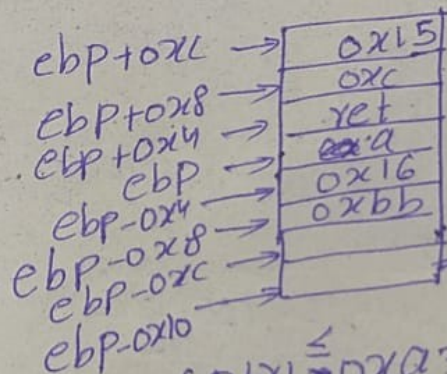 ebp+0xc → 0x15
ebp+0x8 → 0xc
ebp+0x4 → ret
ebp → a
ebp-0x4 → 0x16
ebp-0x8 → 0xbb
ebp-0xc →
ebp-0x10 →
≤ 0xa